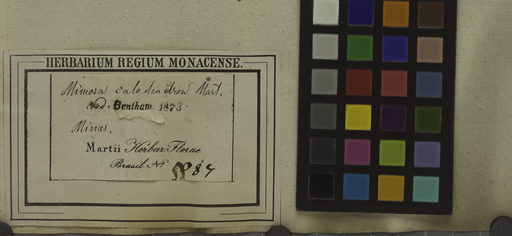 HERBARIUM REGIUM MONACENSE.
Mimosa calodendron Mart.
Bentham. 1873
Minas.
Martii Herbar. Florae
Brasil. No.